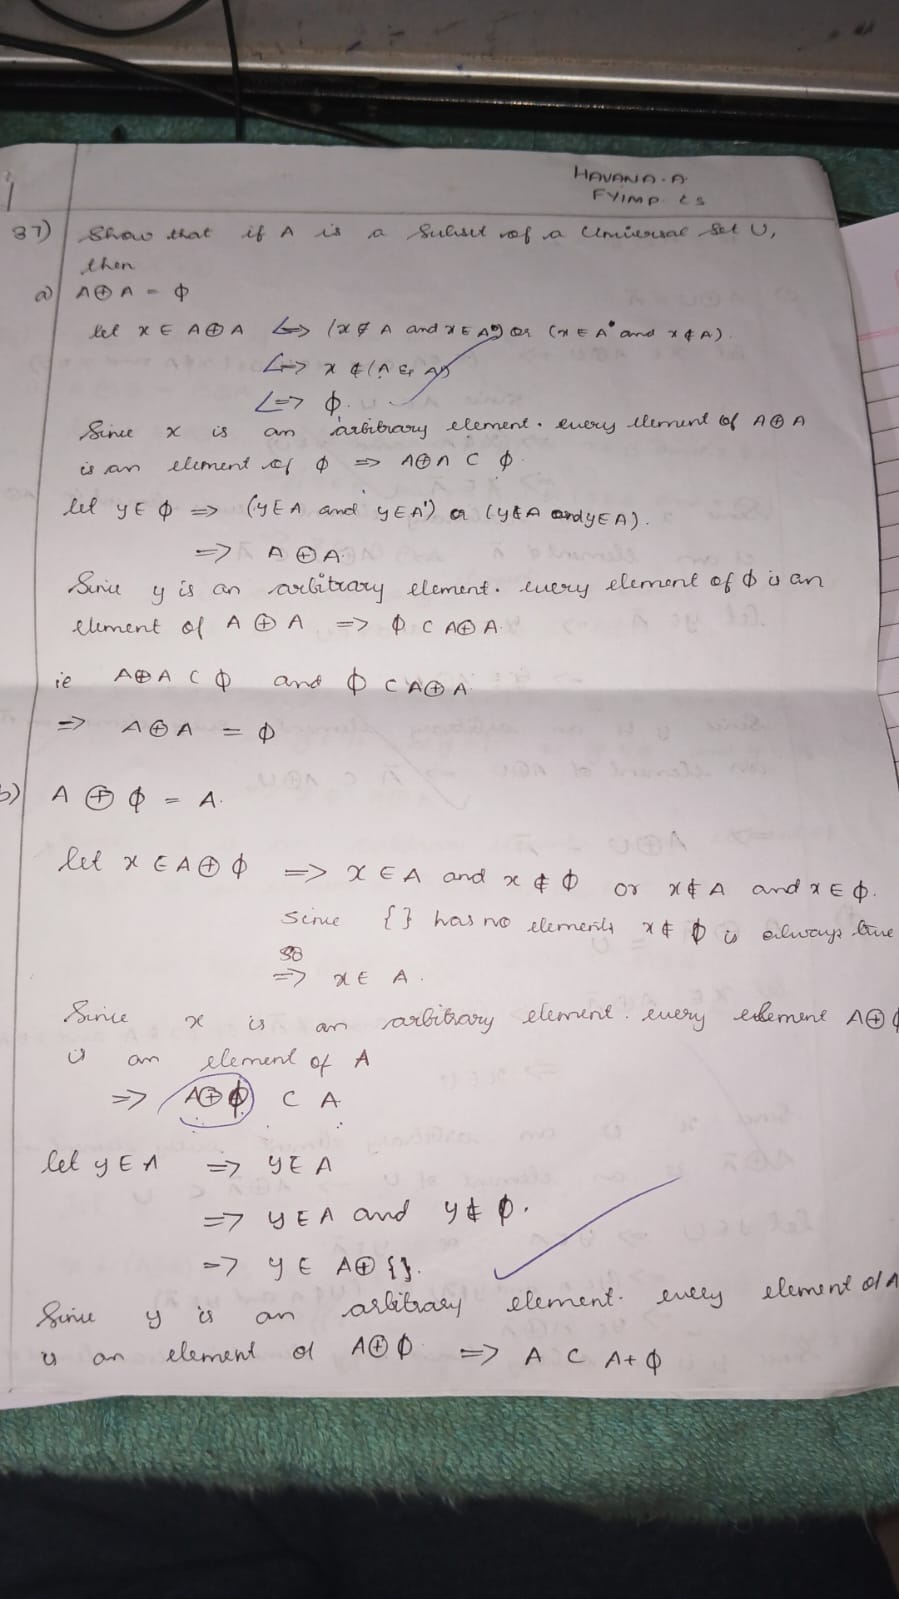 HAVANA.A
FYIMP CS
37) Show that if A is a Subset of a Universal Set U,
then
a) A⊕A = ϕ
let x ∈ A⊕A <=> (x ∉ A and x ∈ A) or (x ∈ A and x ∉ A).
<=> x ∉ (A & A)
<=> ϕ.
Since x is an arbitrary element. every element of A⊕A
is an element of ϕ => A⊕A ⊂ ϕ.
let y ∈ ϕ => (y∈A and y∈A') or (y∉A and y∈A).
=> A⊕A.
Since y is an arbitrary element. every element of ϕ is an
element of A⊕A => ϕ ⊂ A⊕A.
ie A⊕A ⊂ ϕ and ϕ ⊂ A⊕A
=> A⊕A = ϕ
b) A⊕ϕ = A.
let x ∈ A⊕ϕ => x ∈ A and x ∉ ϕ or x∉A and x∈ϕ.
Since { } has no elements x∉ϕ is always true
so
=> x∈A.
Since x is an arbitrary element. every element A⊕ϕ
is an element of A
=> A⊕ϕ ⊂ A
let y∈A => y∈A
=> y∈A and y∉ϕ.
=> y∈ A⊕{}.
Since y is an arbitrary element. every element of A
is an element of A⊕ϕ => A ⊂ A+ϕ